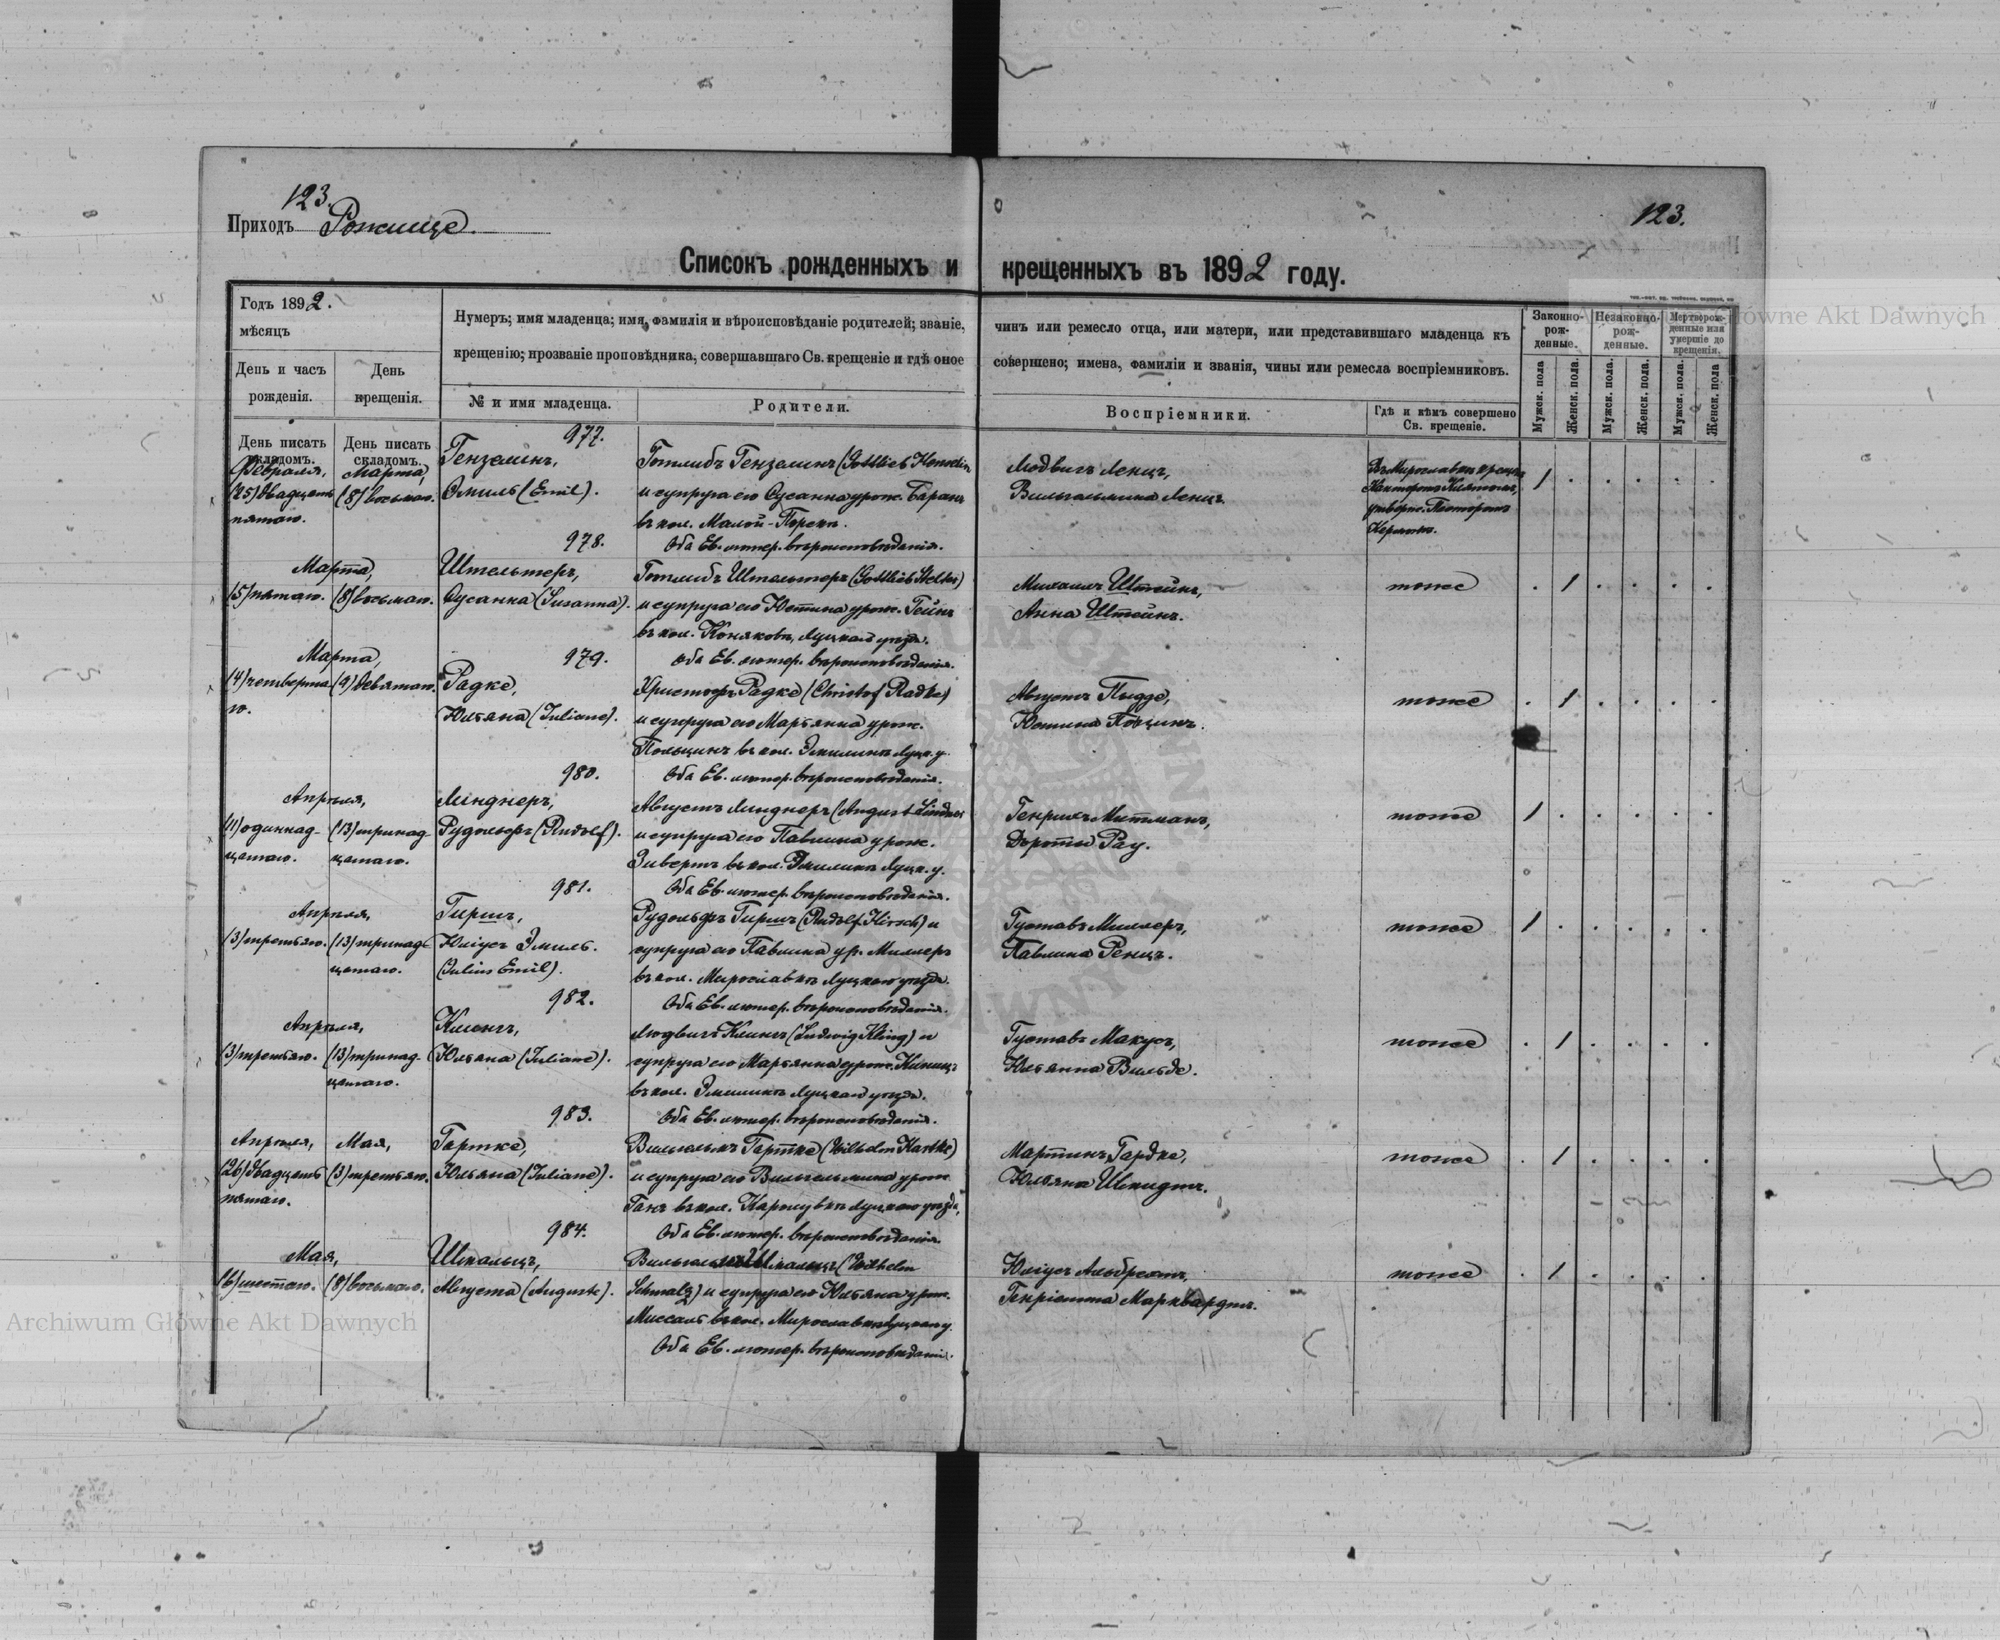 123.
Приходъ Рожище.
123.
Списокъ рожденныхъ и крещенныхъ въ 1892 году.
Годъ 1892.
мѣсяцъ
День и часъ рожденія.
День крещенія.
Нумеръ; имя младенца; имя, фамилія и вѣроисповѣданіе родителей; званіе, чинъ или ремесло отца, или матери, или представившаго младенца къ
крещенію; прозваніе проповѣдника, совершавшаго Св. крещеніе и гдѣ оное совершено; имена, фамиліи и званія, чины или ремесла воспріемниковъ.
№ и имя младенца.
Родители.
Воспріемники.
Гдѣ и кѣмъ совершено Св. крещеніе.
Законно-рожденные.
Незаконно-рожденные.
Мертворожденные или умершіе до крещенія.
Мужск. пола
Женск. пола.
Мужск. пола.
Женск. пола.
Мужск. пола.
Женск. пола
День писать складомъ.
День писать складомъ.
977.
Февраля,
(25) двадцать
пятаго.
Марта,
(8) восьмаго.
Гензелинъ,
Эмиль (Emil).
Готлибъ Гензелинъ (Gottlieb Henselin
и супруга его Сусанна урож. Баранъ
въ кол. Малой-Порскъ.
Оба Ев. лютер. вѣроисповѣданія.
Людвигъ Ленцъ,
Вильгельмина Ленцъ.
Въ Мирославкѣ крещ.
Канторомъ
утвержд. Пасторомъ
Кермомъ.
1
978.
Марта,
(5) пятаго.
(8) восьмаго.
Штельтеръ,
Сусанна (Susanna).
Готлибъ Штельтеръ (Gottlieb Stelter)
и супруга его Юстина урож. Гейнъ
въ кол. Коняковъ, Луцкаго уѣзда.
Оба Ев. лютер. вѣроисповѣданія.
Михаилъ Штейнъ,
Анна Штейнъ.
тоже
1
979.
Марта,
(4) четверта
го.
(9) девятаго.
Радке,
Юльяна (Juliane).
Христофъ Радке (Christof Radke)
и супруга его Марьянна урож.
Польцинъ въ кол. Эмилинъ Луцк. у.
Оба Ев. лютер. вѣроисповѣданія.
Августъ Пыдде,
Юстина Поцинъ.
тоже
1
980.
Апрѣля,
(11) одиннад-
цатаго.
(13) тринад-
цатаго.
Линднеръ,
Рудольфъ (Rudolf).
Августъ Линднеръ (August Lindner
и супруга его Павлина урож.
Зивертъ въ кол. Эмилинъ Луцк. у.
Оба Ев. лютер. вѣроисповѣданія.
Генрихъ Митманъ,
Доротья Рау.
тоже
1
981.
Апрѣля,
(3) третьяго.
(13) тринад-
цатаго.
Гиршъ,
Юліусъ Эмиль.
(Julius Emil).
Рудольфъ Гиршъ (Rudolf Hirsch) и
супруга его Павлина ур. Миллеръ
въ кол. Мирославкѣ Луцкаго уѣзда.
Оба Ев. лютер. вѣроисповѣданія.
Густавъ Миллеръ,
Павлина Ренцъ.
тоже
1
982.
Апрѣля,
(3) третьяго.
(13) тринад-
цатаго.
Клингъ,
Юльяна (Juliane).
Людвигъ Клингъ (Ludwig Kling) и
супруга его Марьянна урож. Киницъ
въ кол. Эмилинъ Луцкаго уѣзда.
Оба Ев. лютер. вѣроисповѣданія.
Густавъ Макусъ,
Юльянна Вильде.
тоже
1
983.
Апрѣля,
(26) двадцать
пятаго.
Мая,
(3) третьяго.
Гартке,
Юльяна (Juliane).
Вильгельмъ Гартке (Wilhelm Hartke)
и супруга его Вильгельмина урож.
Ганъ въ кол. Каролувкѣ Луцкаго уѣзда,
Оба Ев. лютер. вѣроисповѣданія.
Мартинъ Гардке,
Юльяна Шмидтъ.
тоже
1
984.
Мая,
(6) шестаго.
(8) восьмаго.
Шмальцъ,
Августа (Auguste).
Вильгельмъ Шмальцъ (Wilhelm
Schmalz) и супруга его Юльяна урож.
Миссаль въ кол. Мирославкѣ Луцкаго у.
Оба Ев. лютер. вѣроисповѣданія.
Юліусъ Альбрехтъ,
Генріетта Марквардтъ.
тоже
1
Archiwum Główne Akt Dawnych